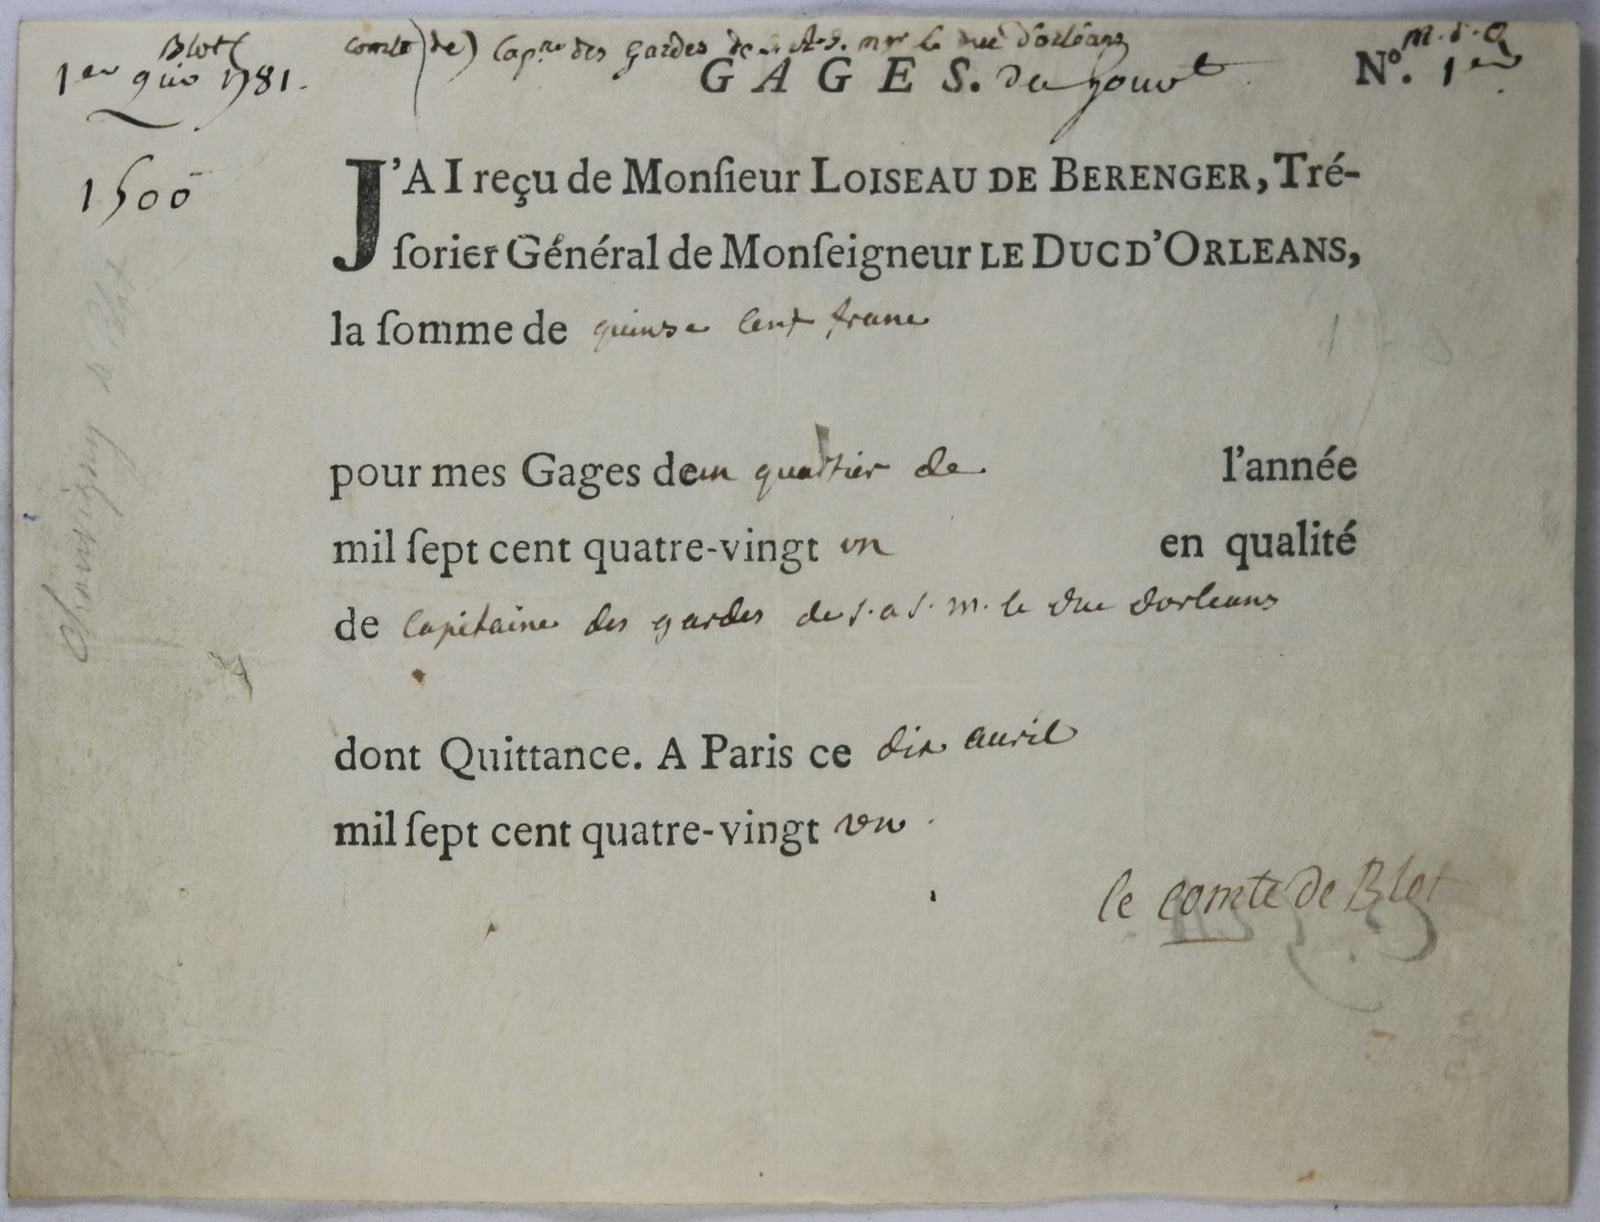 Blot (comte de) Cap.ne des gardes de S. A. S. mgr le duc d'orléans m. d. O.
1er quo 1781. GAGES. du gouvt No. 1er
1500
J'AI reçu de Monſieur LOISEAU DE BERENGER, Tré-
ſorier Général de Monſeigneur LE DUC D'ORLEANS,
la ſomme de quinse cent franc
pour mes Gages de un quartier de l'année
mil ſept cent quatre-vingt un en qualité
de Capitaine des gardes de s. a s. m. le duc dorleans
dont Quittance. A Paris ce dix auril
mil ſept cent quatre-vingt un.
le comte de Blot
Chauvigny de Blot